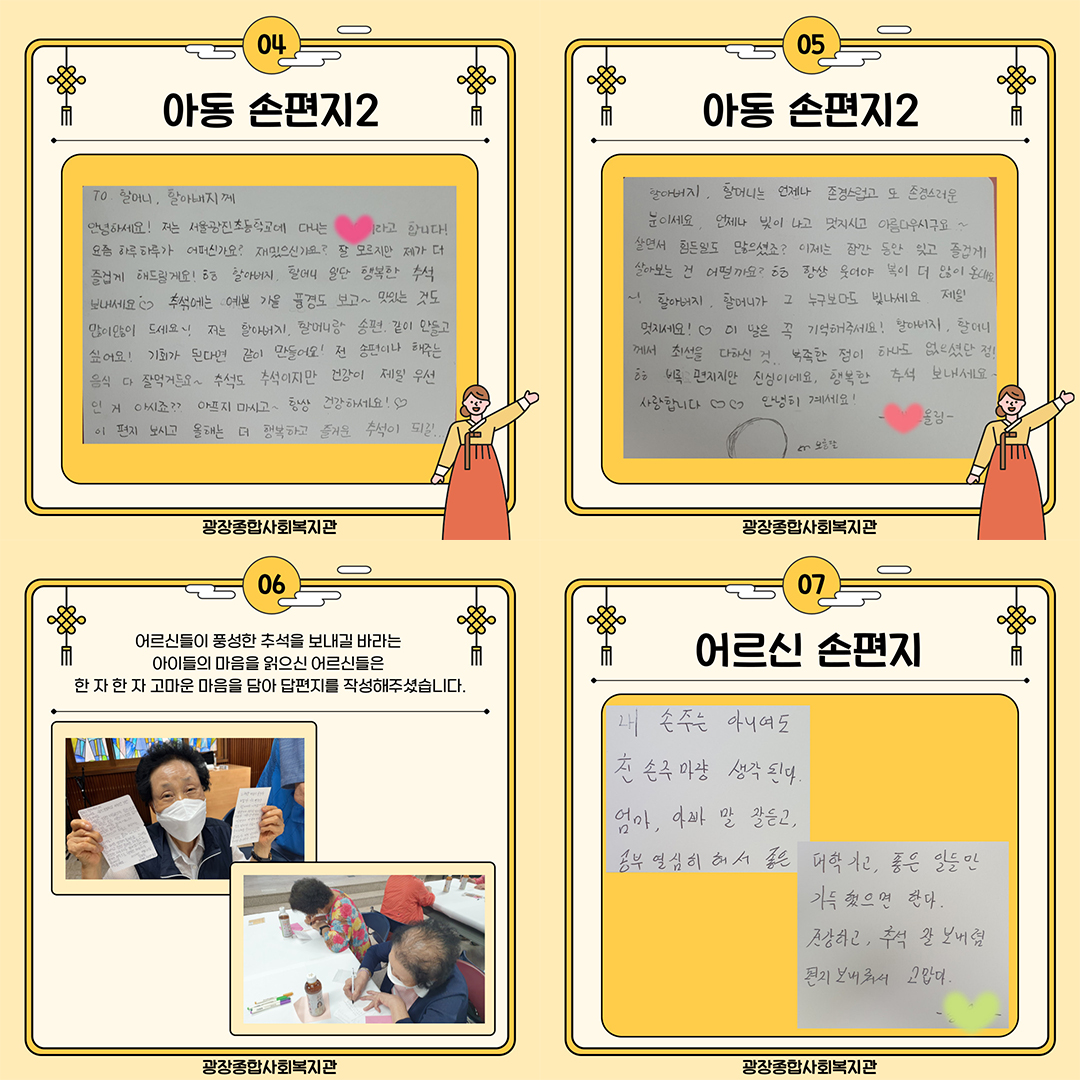 04
아동 손편지2
TO. 할머니, 할아버지께
안녕하세요! 저는 서울광진초등학교에 다니는 라고 합니다!
요즘 하루하루가 어떠신가요? 재밌으신가요? 잘 모르지만 제가 더
즐겁게 해드릴게요! ㅎㅎ 할아버지, 할머니 일단 행복한 추석
보내세요 추석에는 예쁜 가을 풍경도 보고~ 맛있는 것도
많이많이 드세요~! 저는 할아버지, 할머니랑 송편 같이 만들고
싶어요! 기회가 된다면 같이 만들어요! 전 송편이나 해주는
음식 다 잘먹거든요~ 추석도 추석이지만 건강이 제일 우선
인 거 아시죠?? 아프지 마시고~ 항상 건강하세요! ♡
이 편지 보시고 올해는 더 행복하고 즐거운 추석이 되길..
광장종합사회복지관
05
아동 손편지2
할아버지, 할머니는 언제나 존경스럽고 또 존경스러운
분이세요. 언제나 빛이 나고 멋지시고 아름다우시구요~
살면서 힘든일도 많으셨죠? 이제는 잠깐 동안 잊고 즐겁게
살아보는 건 어떨까요? ㅎㅎ 항상 웃어야 복이 더 많이 온대요
~! 할아버지, 할머니가 그 누구보다도 빛나세요. 제일
멋지세요! ♡ 이 말은 꼭 기억해주세요! 할아버지, 할머니
께서 최선을 다하신 것, 부족한 점이 하나도 없으셨단 점!
ㅎㅎ 비록 편지지만 진심이에요, 행복한 추석 보내세요~
사랑합니다 ♡♡ 안녕히 계세요!
올림-
보름달
광장종합사회복지관
06
어르신들이 풍성한 추석을 보내길 바라는
아이들의 마음을 읽으신 어르신들은
한 자 한 자 고마운 마음을 담아 답편지를 작성해주셨습니다.
광장종합사회복지관
07
어르신 손편지
내 손주는 아니여도
친 손주 마냥 생각 된다.
엄마, 아빠 말 잘듣고,
공부 열심히 해서 좋은
대학 가고, 좋은 일들만
가득 했으면 한다.
건강하고, 추석 잘 보내렴
편지 보내줘서 고맙다.
광장종합사회복지관